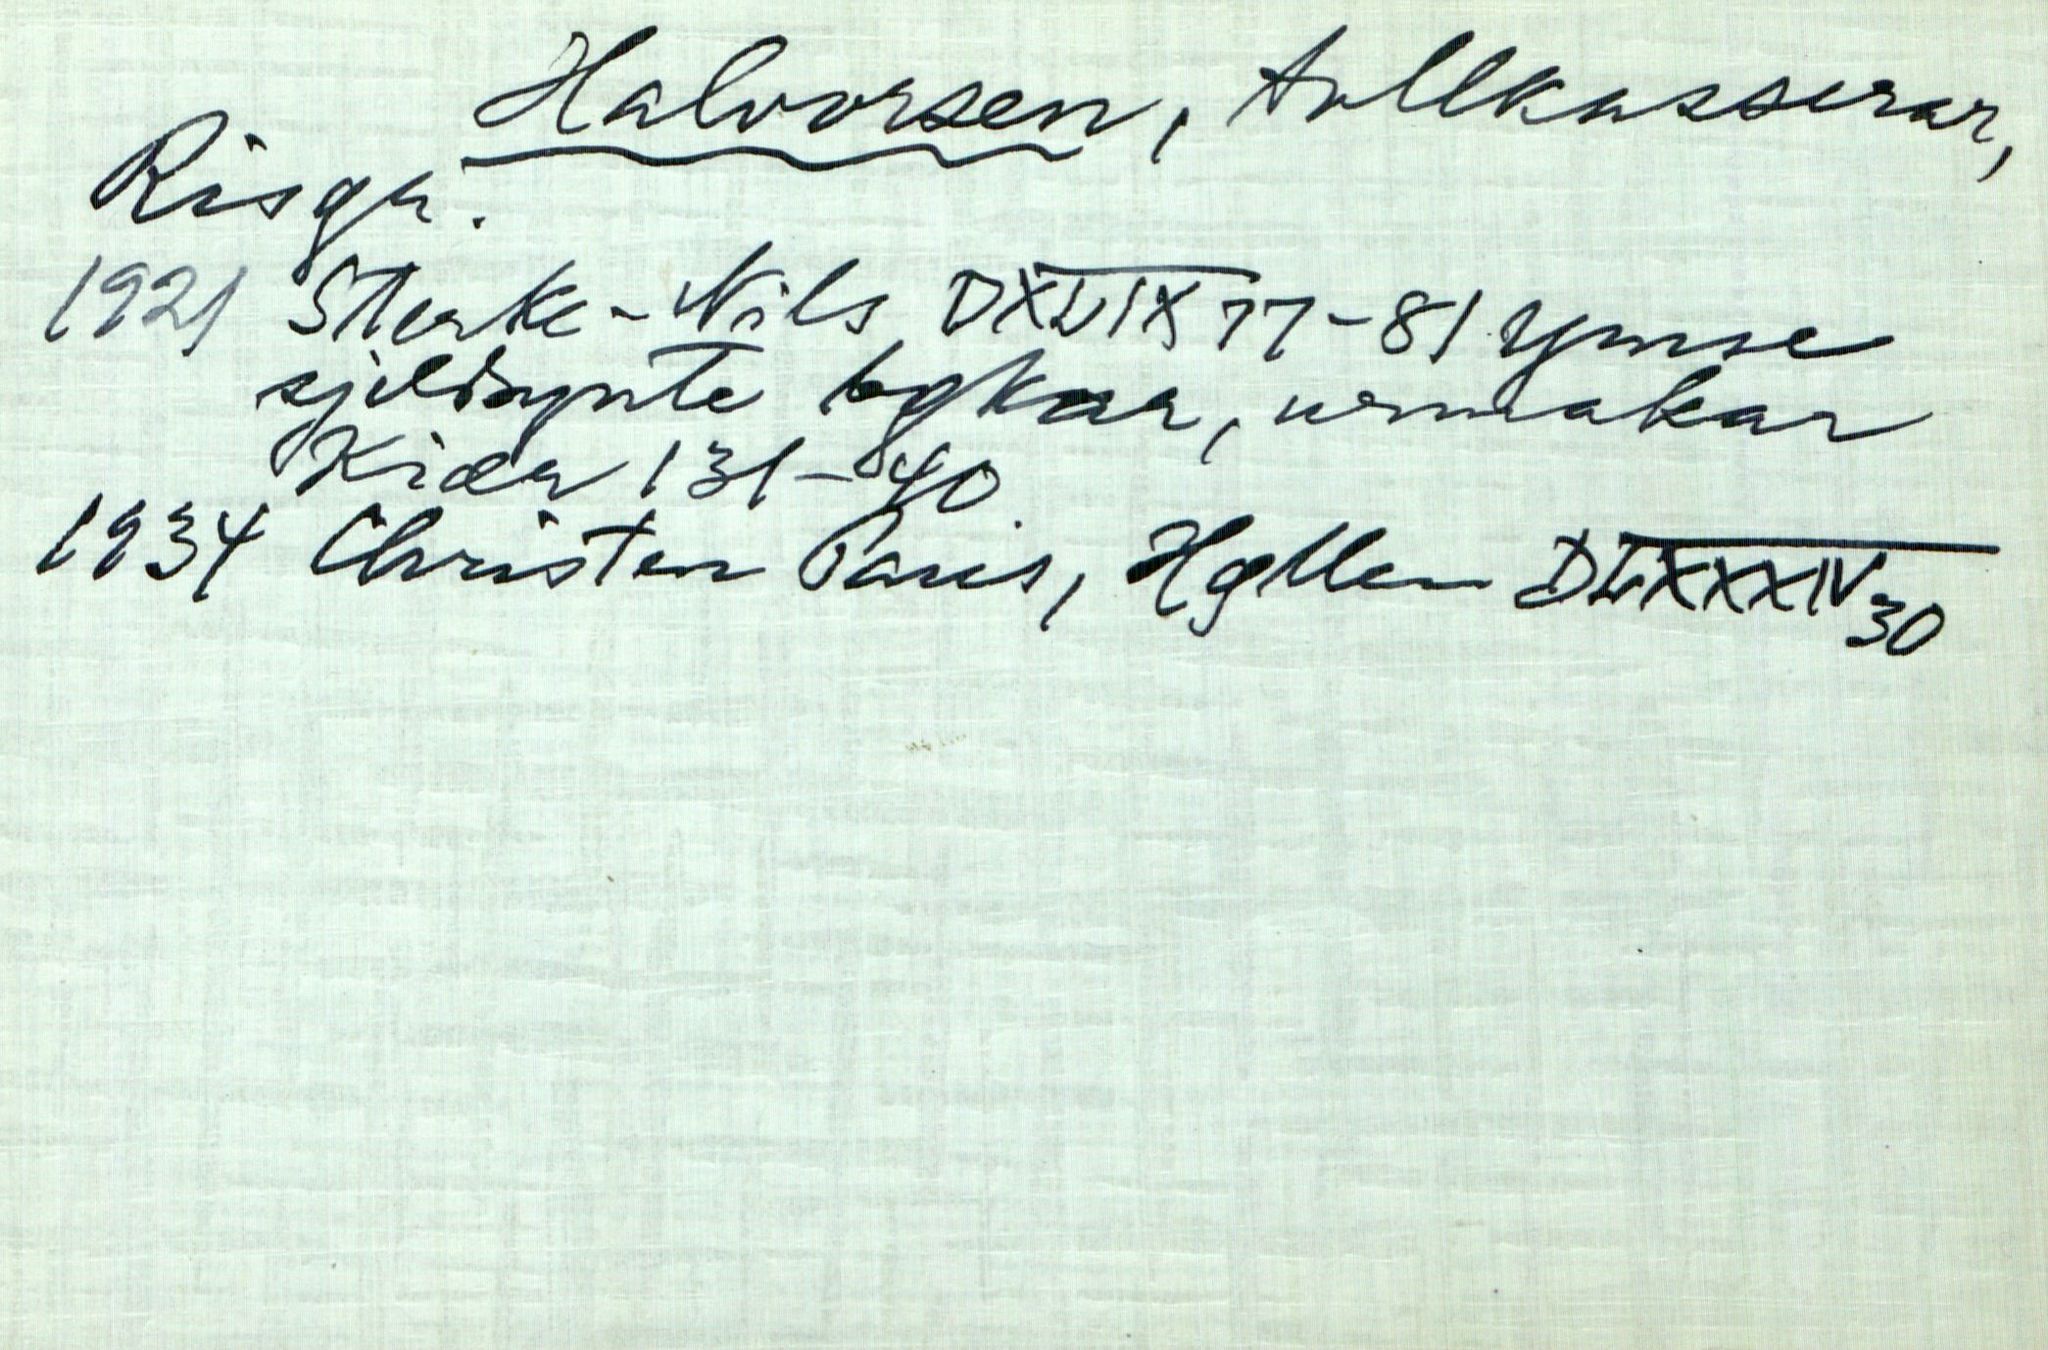 Halvorsen, tollkasserar,
Risør.
1921 Sterke-Nils DXLIX 77-81 Ymse
sjeldsynte bykar, urmakar
Kiær 131-40.
1934 Christen Paus, Hyllen DLXXXIV 30